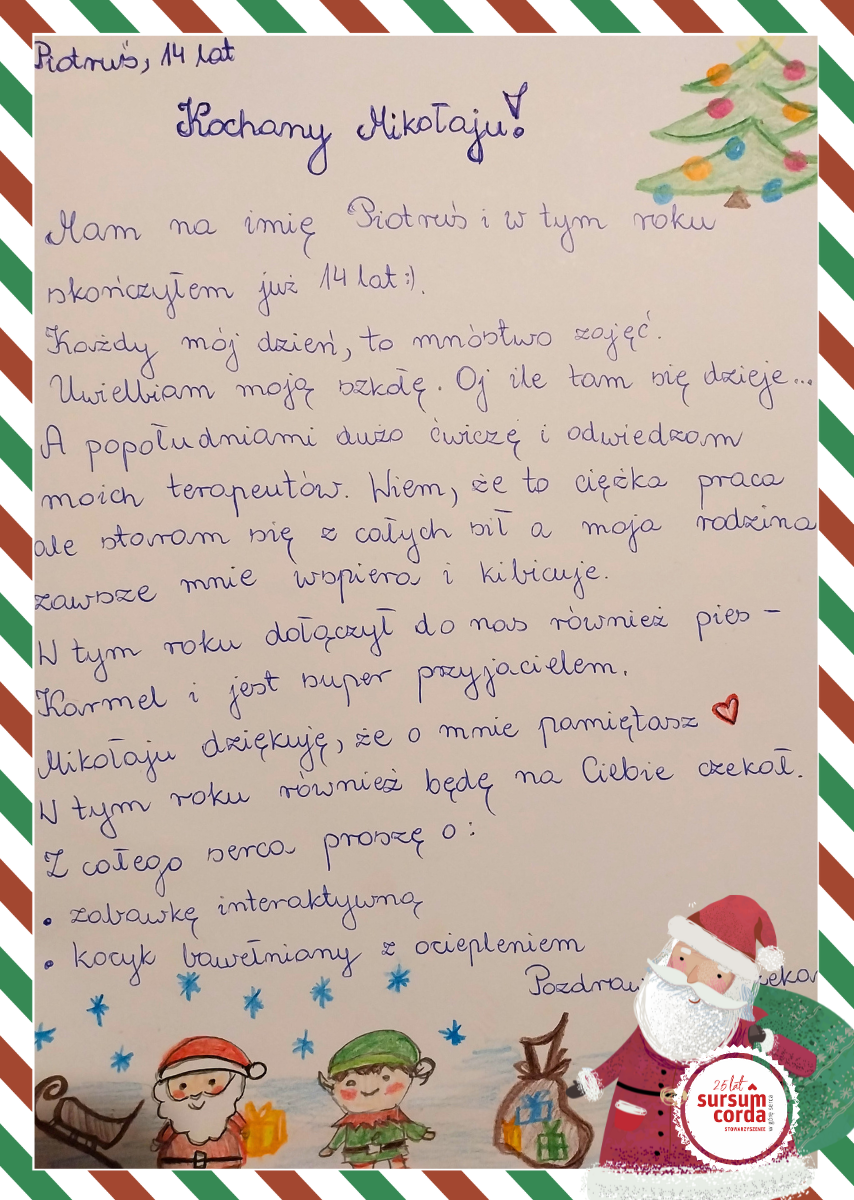 Piotruś, 14 lat
Kochany Mikołaju!
Mam na imię Piotruś i w tym roku
skończyłem już 14 lat :).
Każdy mój dzień, to mnóstwo zajęć.
Uwielbiam moją szkołę. Oj ile tam się dzieje...
A popołudniami dużo ćwiczę i odwiedzam
moich terapeutów. Wiem, że to ciężka praca
ale staram się z całych sił a moja rodzina
zawsze mnie wspiera i kibicuje.
W tym roku dołączył do nas również pies -
Karmel i jest super przyjacielem.
Mikołaju dziękuję, że o mnie pamiętasz
W tym roku również będę na Ciebie czekał.
Z całego serca proszę o:
• zabawkę interaktywną
• kocyk bawełniany z ociepleniem
26 lat
sursum
corda
STOWARZYSZENIE
w górę serca